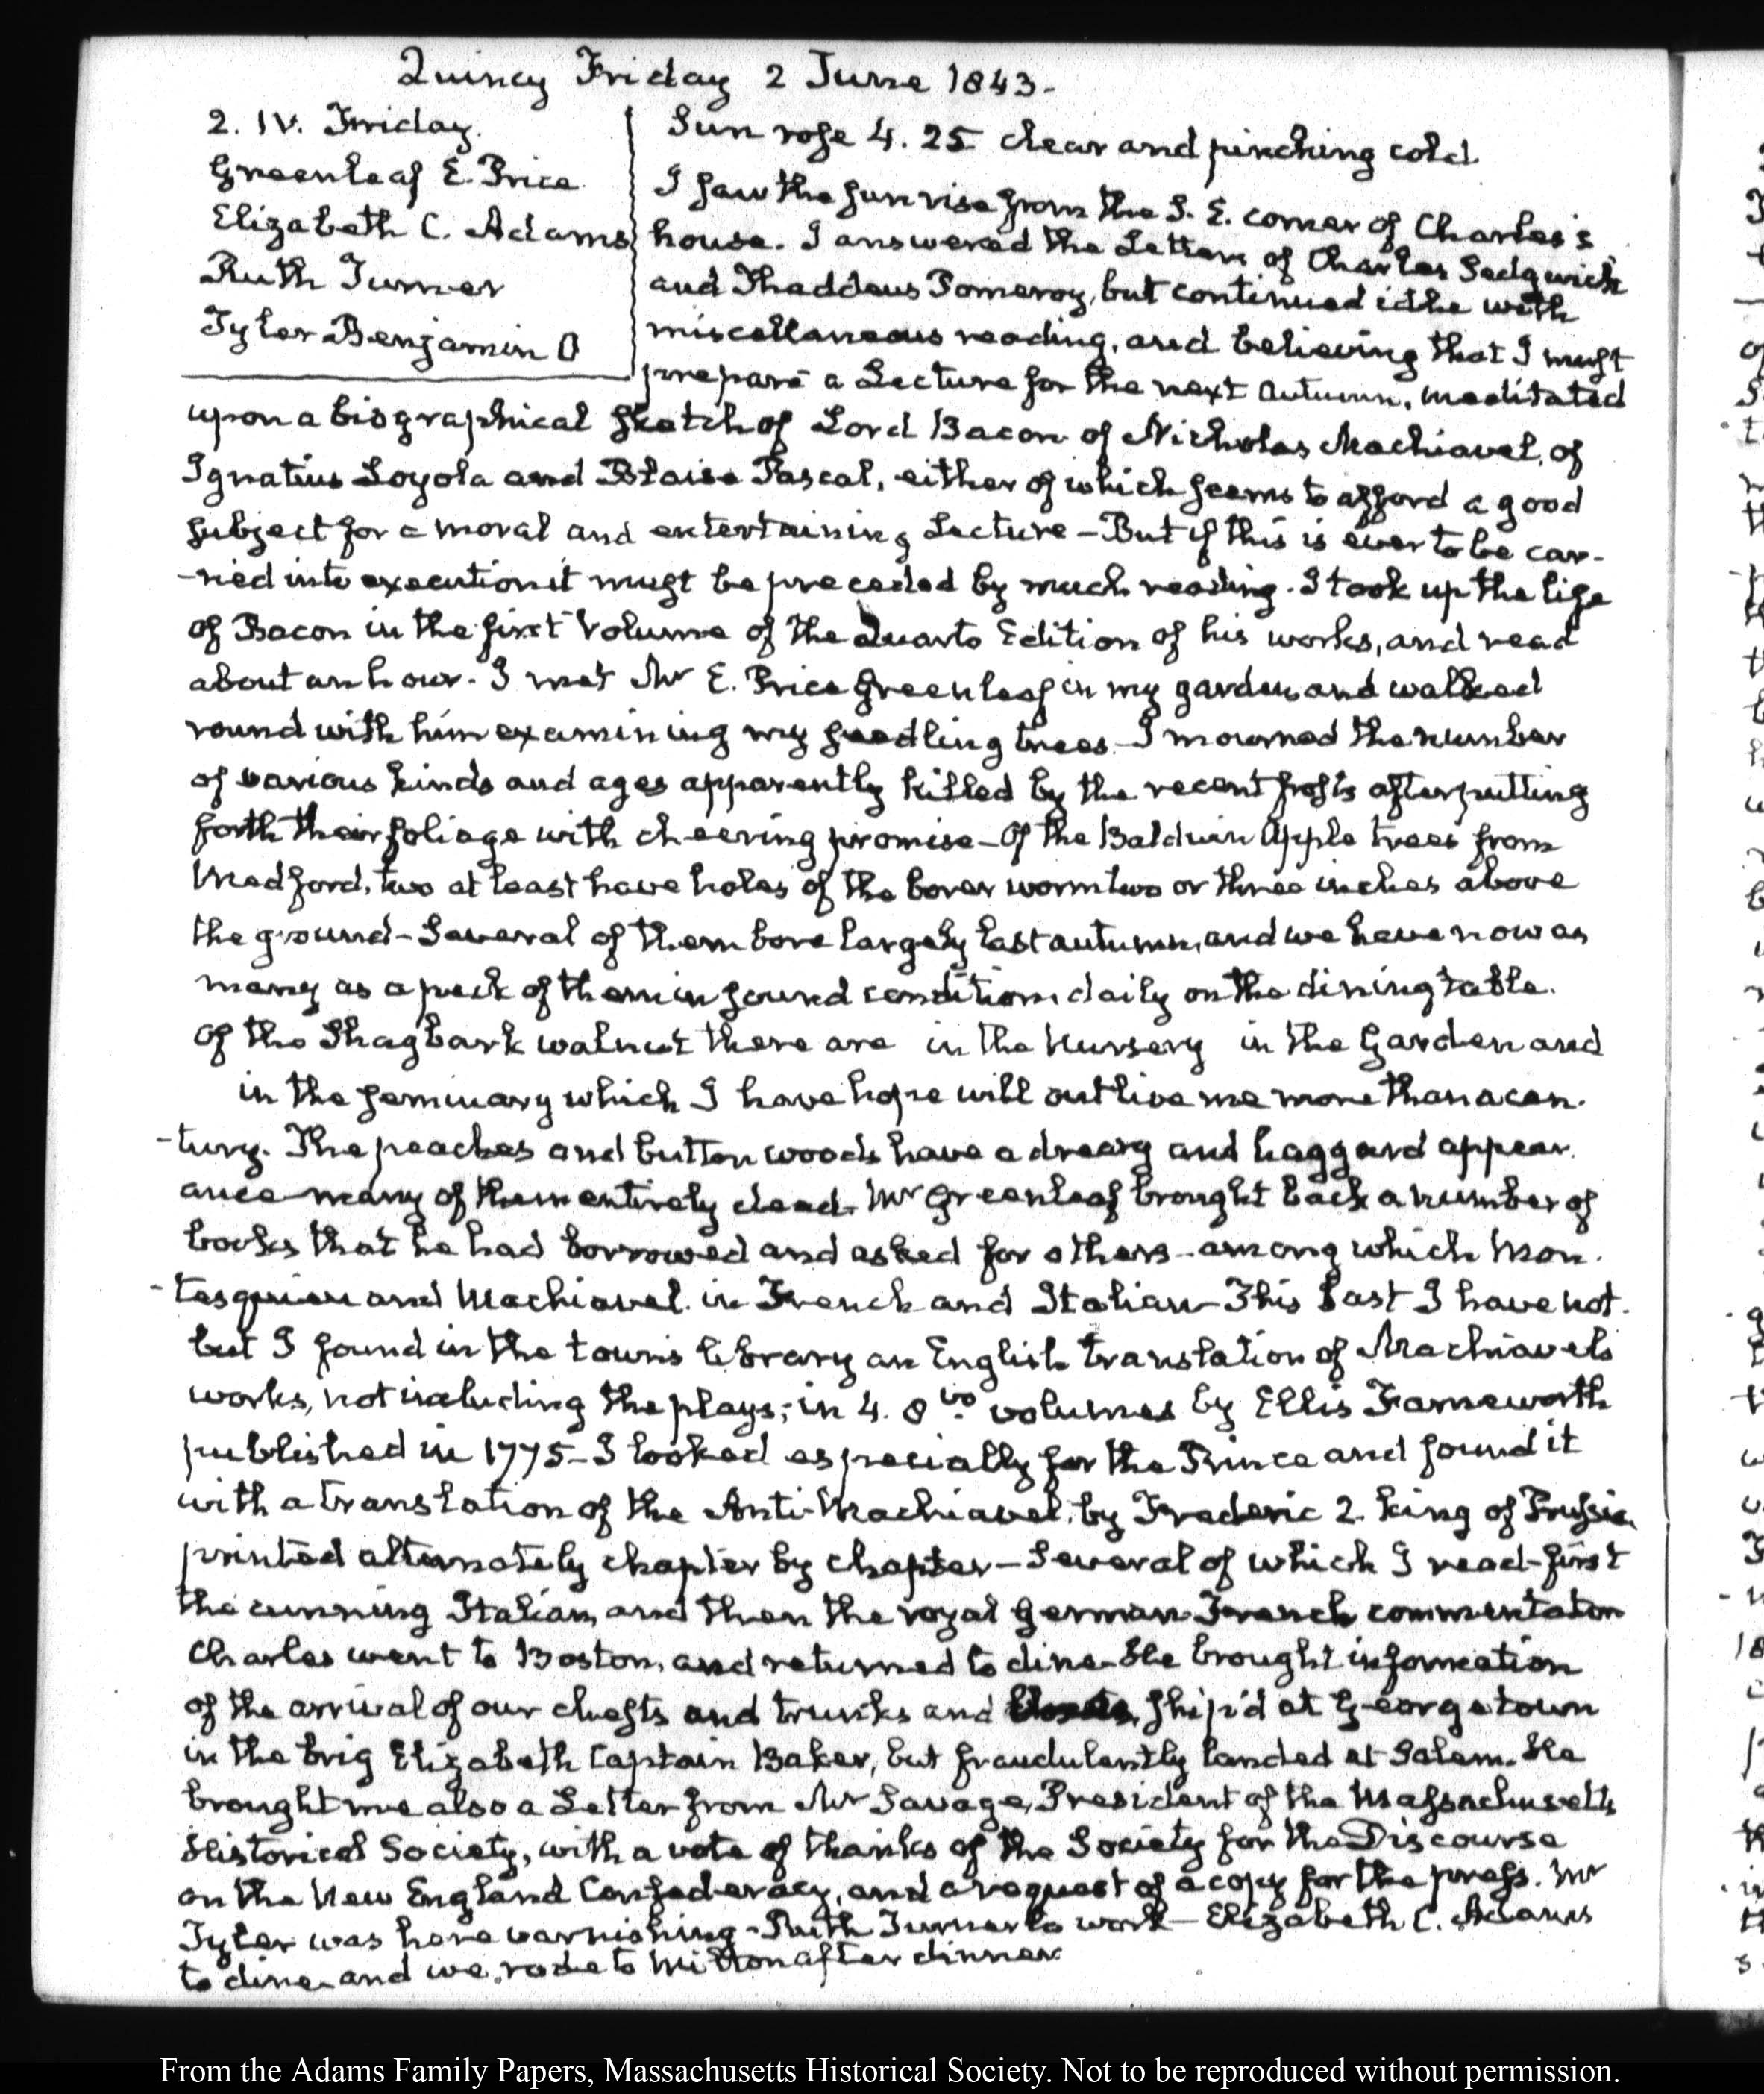 Quincy Friday 2 June 1843.
2. IV. Friday.
Greenleaf E. Price
Elizabeth C. Adams
Ruth Turner
Tyler Benjamin O
Sun rose 4. 25 clear and pinching cold.
I saw the sun rise from the S. E. corner of Charles's
house. I answered the Letters of Charles Sedgwick
and Thaddeus Pomeroy, but continued idle with
miscellaneous reading, and believing that I must
prepare a Lecture for the next Autumn, meditated
upon a biographical sketch of Lord Bacon of Nicholas Machiavel, of
Ignatius Loyola and Blaise Pascal, either of which seems to afford a good
subject for a moral and entertaining Lecture – But if this is ever to be car-
-ried into execution it must be preceded by much reading. I took up the life
of Bacon in the first Volume of the Quarto Edition of his works, and read
about an hour. I met Mr E. Price Greenleaf in my garden and walked
round with him examining my seedling trees. I mourned the number
of various kinds and ages apparently killed by the recent frosts after putting
forth their foliage with cheering promise – Of the Baldwin Apple trees from
Medford, two at least have holes of the borer worm two or three inches above
the ground – Several of them bore largely last autumn, and we have now as
many as a peck of them in sound condition daily on the dining table.
Of the Shagbark walnut there are in the Nursery in the Garden and
in the seminary which I have hope will outlive me more than a cen-
-tury. The peaches and button woods have a dreary and haggard appear-
ance many of them entirely dead. Mr Greenleaf brought back a number of
books that he had borrowed and asked for others – among which Mon-
-tesquieu and Machiavel in French and Italian – This last I have not.
but I found in the town's library an English translation of Machiavel's
works, not including the plays; in 4. 8vo. volumes by Ellis Farneworth
published in 1775 – I looked especially for the Prince and found it
with a translation of the Anti-Machiavel, by Frederic 2. King of Prussia
printed alternately chapter by chapter – Several of which I read – first
the cunning Italian, and then the royal German French commentator
Charles went to Boston, and returned to dine. He brought information
of the arrival of our chests and trunks and ship'd at Georgetown
in the brig Elizabeth Captain Baker, but fraudulently landed at Salem. He
brought me also a Letter from Mr Savage, President of the Massachusetts
Historical Society, with a vote of thanks of the Society for the Discourse
on the New England Confederacy, and a request of a copy for the press. Mr
Tyler was here varnishing – Ruth Turner to work – Elizabeth C. Adams
to dine and we rode to Milton after dinner
From the Adams Family Papers, Massachusetts Historical Society. Not to be reproduced without permission.